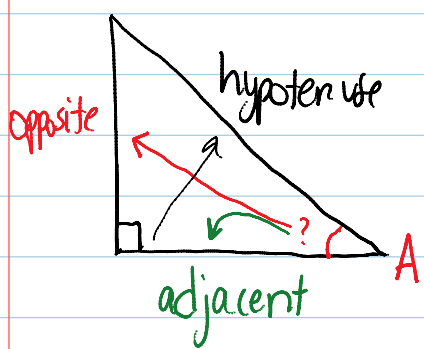 hypotenuse
opposite
?
A
adjacent